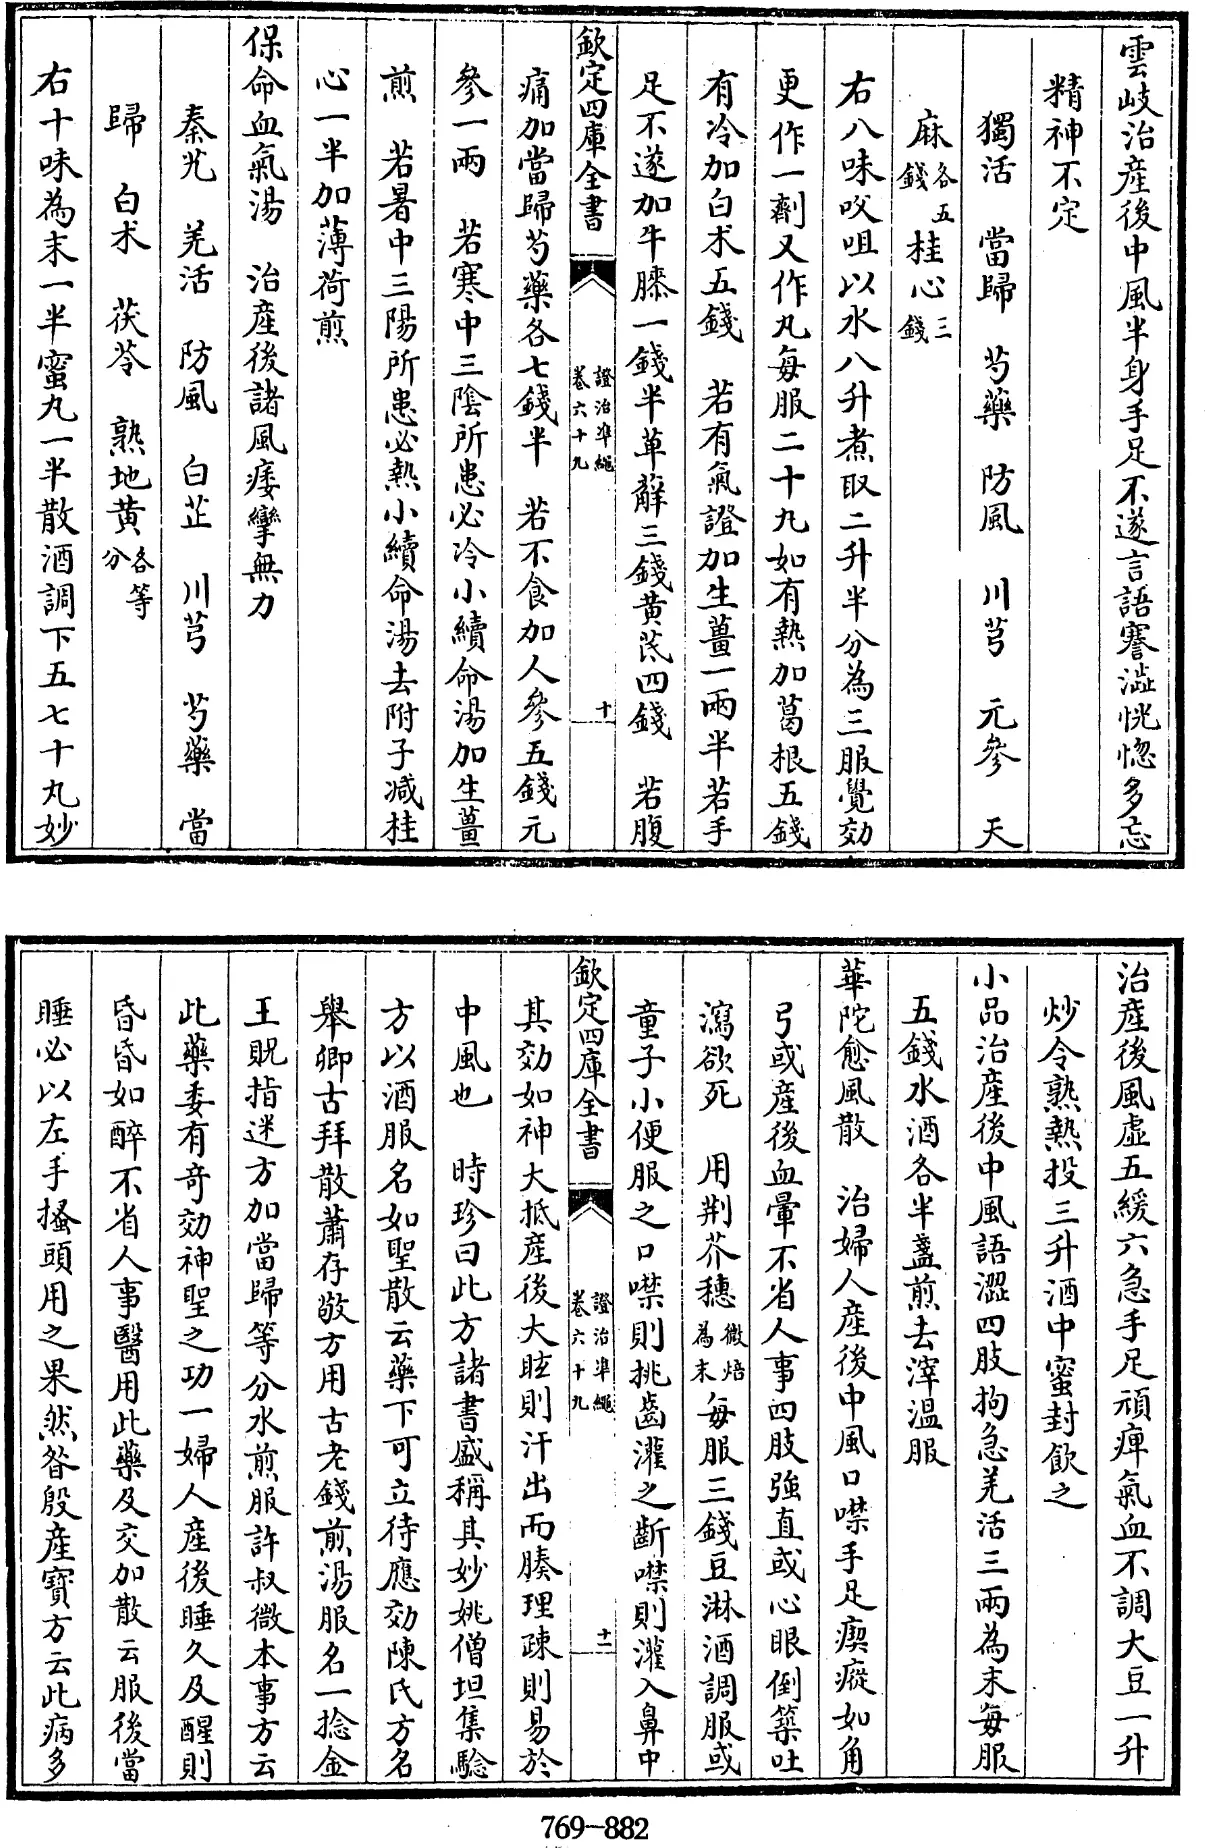 雲岐治產後中風半身手足不遂言語謇澁恍惚多忘
精神不定
獨活　當歸　芍藥　防風　川芎　元參　天
麻各五錢　桂心三錢
右八味㕮咀以水八升煮取二升半分為三服覺効
更作一劑又作丸每服二十丸如有熱加葛根五錢
有冷加白术五錢　若有氣證加生薑一兩半若手
足不遂加牛膝一錢半萆薢三錢黄芪四錢　若腹
欽定四庫全書
證治準繩
卷六十九
十
痛加當歸芍藥各七錢半　若不食加人參五錢元
參一兩　若寒中三陰所患必冷小續命湯加生薑
煎　若暑中三陽所患必熱小續命湯去附子减桂
心一半加薄荷煎
保命血氣湯　治產後諸風痿攣無力
秦艽　羌活　防風　白芷　川芎　芍藥　當
歸　白术　茯苓　熟地黄各等分
右十味為末一半蜜丸一半散酒調下五七十丸妙
治產後風虛五緩六急手足頑痺氣血不調大豆一升
炒令熟熱投三升酒中蜜封飲之
小品治產後中風語澀四肢拘急羌活三兩為末每服
五錢水酒各半盞煎去滓温服
華陀愈風散　治婦人產後中風口噤手足瘈瘲如角
弓或產後血暈不省人事四肢強直或心眼倒築吐
瀉欲死　用荆芥穗微焙為末每服三錢豆淋酒調服或
童子小便服之口噤則挑齒灌之齗噤則灌入鼻中
欽定四庫全書
證治準繩
卷六十九
十一
其効如神大抵產後大眩則汗出而腠理疎則易於
中風也　時珍曰此方諸書盛稱其妙姚僧坦集驗
方以酒服名如聖散云藥下可立待應効陳氏方名
舉卿古拜散蕭存敬方用古老錢煎湯服名一捻金
王貺指迷方加當歸等分水煎服許叔微本事方云
此藥委有奇効神聖之功一婦人產後睡久及醒則
昏昏如醉不省人事醫用此藥及交加散云服後當
睡必以左手搔頭用之果然昝殷產寳方云此病多
769-882